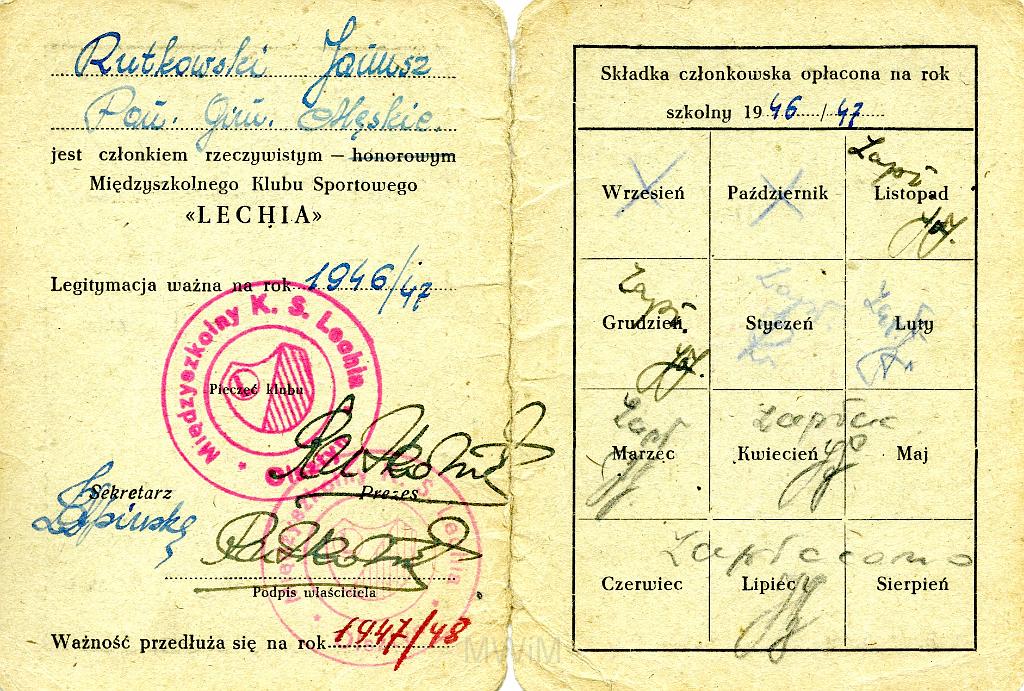 Rutkowski Janusz
Pań. Gim. Męskie.
jest członkiem rzeczywistym — honorowym
Międzyszkolnego Klubu Sportowego
«LECHIA»
Legitymacja ważna na rok 1946/47
Międzyszkolny K. S. Lechia
Olsztyn
Pieczęć klubu
Sekretarz
Prezes
Podpis właściciela
Ważność przedłuża się na rok 1947/48
MWiM
Składka członkowska opłacona na rok
szkolny 1946/47
Zapł
Wrzesień Październik Listopad
Zapł.
Grudzień Styczeń Luty
Zapł
Marzec Kwiecień Maj
Zapłacono
Czerwiec Lipiec Sierpień